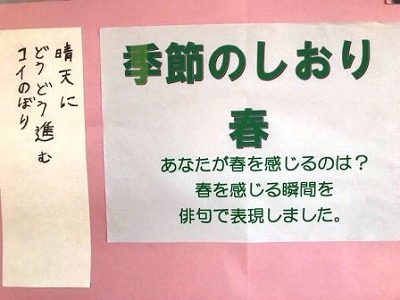 季節のしおり
春
あなたが春を感じるのは？
春を感じる瞬間を
俳句で表現しました。
晴天に
どうどう進む
コイのぼり